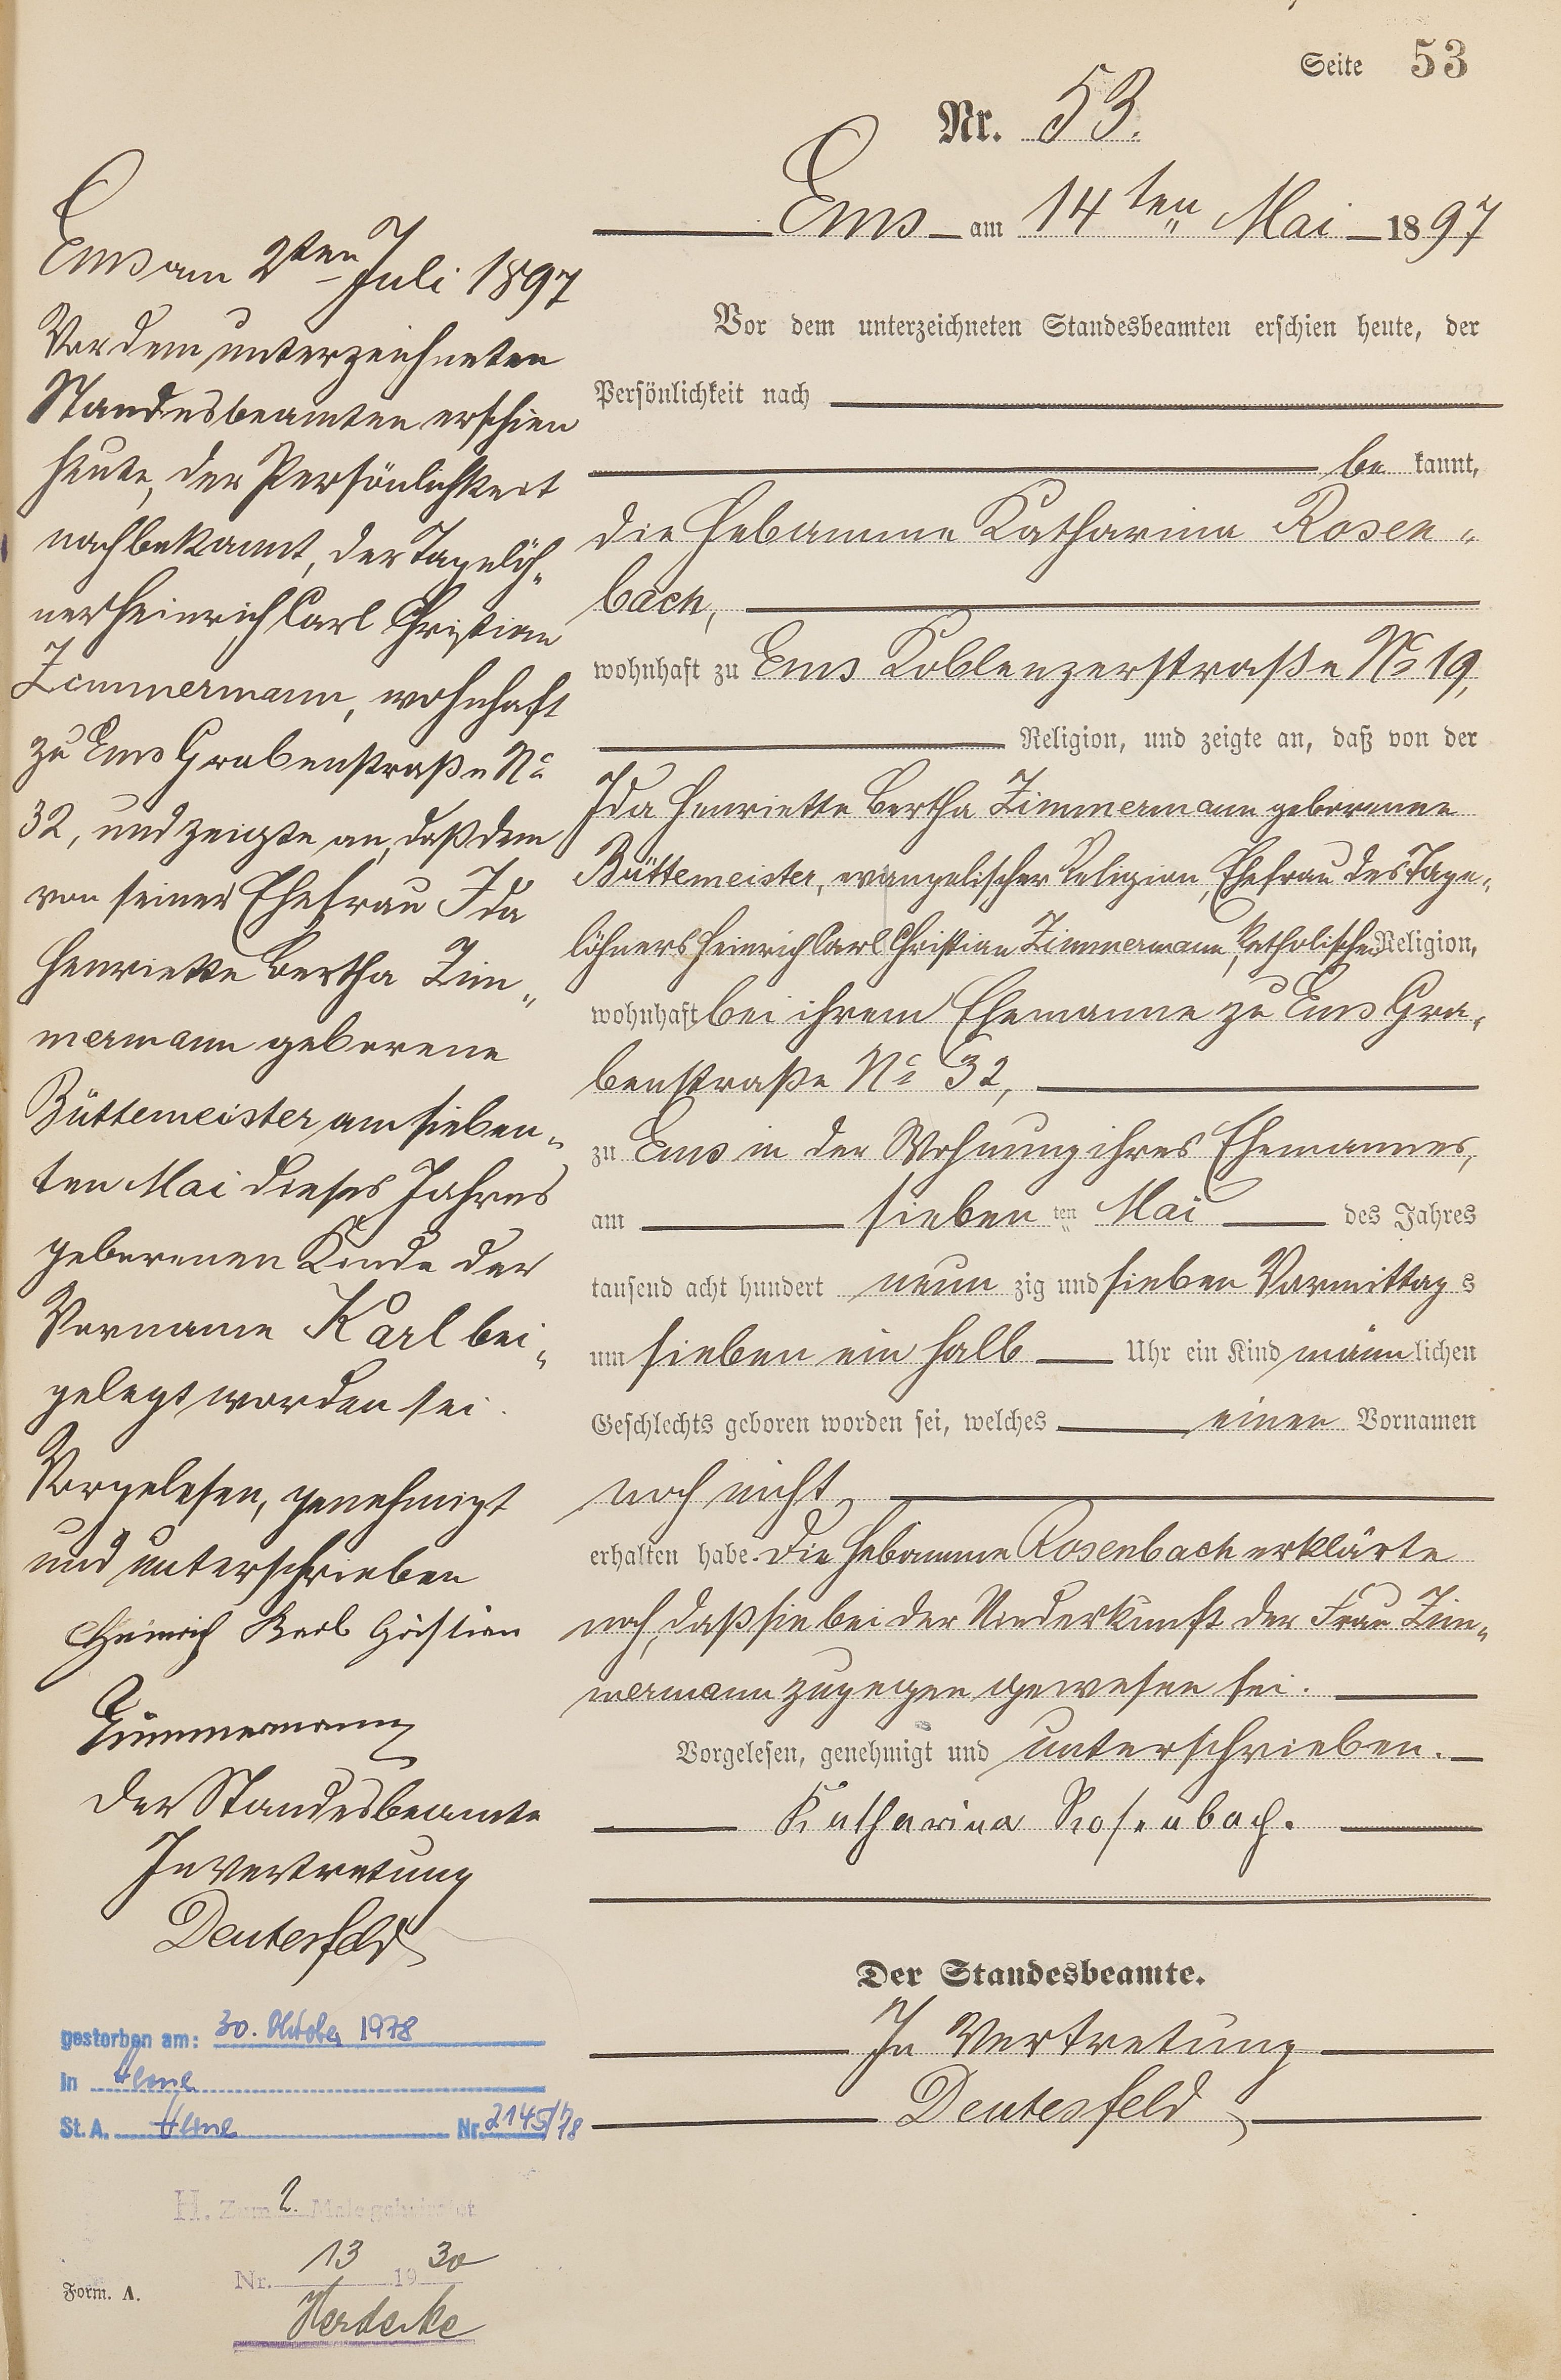 Seite 53
Nr. 53.
Ems am 14ten Mai 1897
Vor dem unterzeichneten Standesbeamten erschien heute, der
Persönlichkeit nach
be kannt,
die Hebamme Katharina Rosen-
bach,
wohnhaft zu Ems Koblenzerstraße No 19,
Religion, und zeigte an, daß von der
Ida Henriette Bertha Zimmermann geborenen
Büttemeister, evangelischer Religion, Ehefrau des Tage-
löhners Heinrich Carl Christian Zimmermann, katholischer Religion,
wohnhaft bei ihrem Ehemanne zu Ems Gra-
benstraße No 32,
zu Ems in der Wohnung ihres Ehemannes,
am sieben ten Mai des Jahres
tausend acht hundert neun zig und sieben Vormittag s
um sieben ein halb Uhr ein Kind männ lichen
Geschlechts geboren worden sei, welches einen Vornamen
noch nicht
erhalten habe. Die Hebamme Rosenbach erklärte
noch, daß sie bei der Niederkunft der Frau Zim-
mermann zugegen gewesen sei.
Vorgelesen, genehmigt und unterschrieben.
Katharina Rosenbach.
Der Standesbeamte.
In Vertretung
Deutesfeld
Ems am 2ten Juli 1897
Vor dem unterzeichneten
Standesbeamten erschien
heute, der Persönlichkeit
nach bekannt, der Tagelöh-
ner Heinrich Carl Christian
Zimmermann, wohnhaft
zu Ems Grabenstraße No
32, und zeigte an, daß dem
von seiner Ehefrau Ida
Henriette Bertha Zim-
mermann geborene
Büttemeister am sieben-
ten Mai dieses Jahres
geborenen Kinde der
Vorname Karl bei-
gelegt worden sei.
Vorgelesen, genehmigt
und unterschrieben
Heinrich Karl Christian
Zimmermann
Der Standesbeamte
In Vertretung
Deutesfeld
gestorben am: 30. Oktober 1978
in Herne
St. A. Herne Nr. 2145/78
H. Zum 2. Male geheiratet
Nr. 13 1930
Herdecke
Form. A.